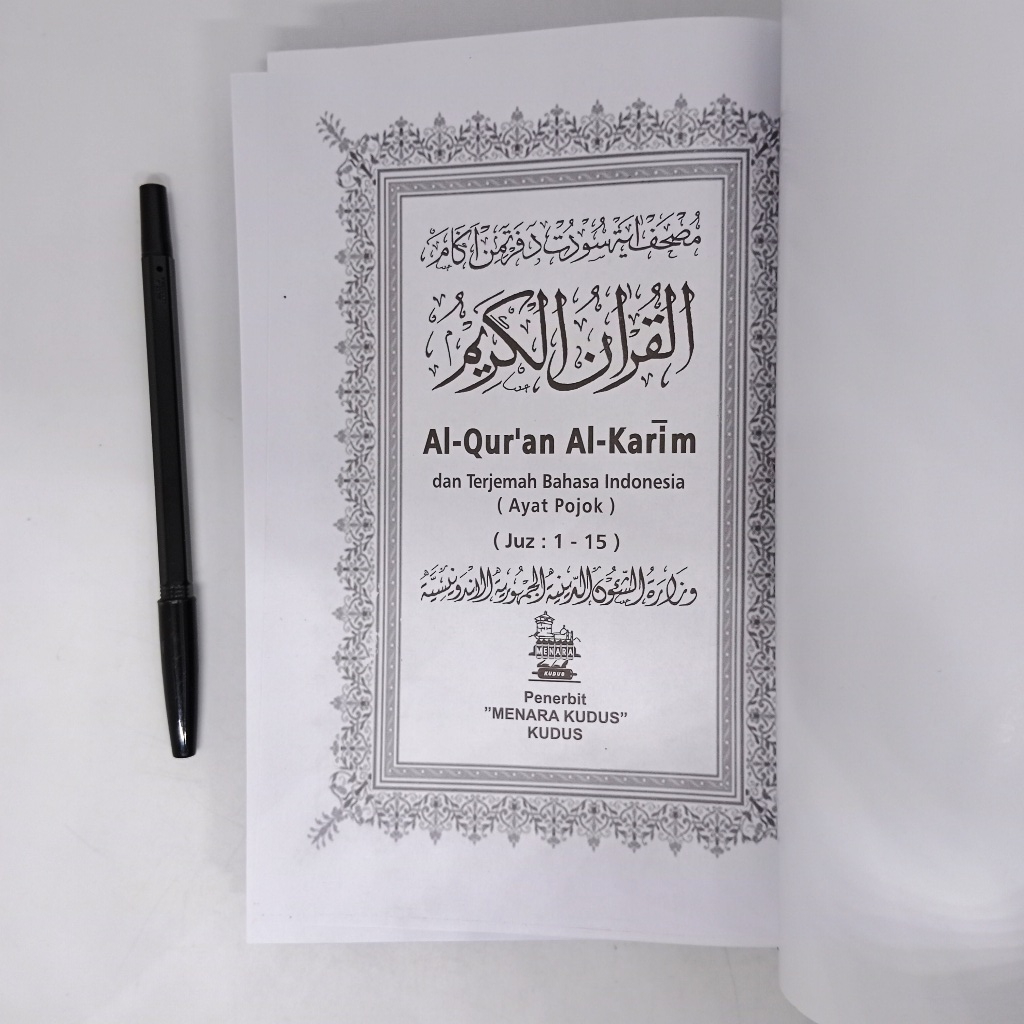 مصحف اية سورت دفرتمن اڬام
القرآن الكريم
Al-Qur'an Al-Karīm
dan Terjemah Bahasa Indonesia
( Ayat Pojok )
( Juz : 1 - 15 )
وزارة الشئون الدينية الجمهورية الاندونيسية
MENARA
KUDUS
Penerbit
"MENARA KUDUS"
KUDUS